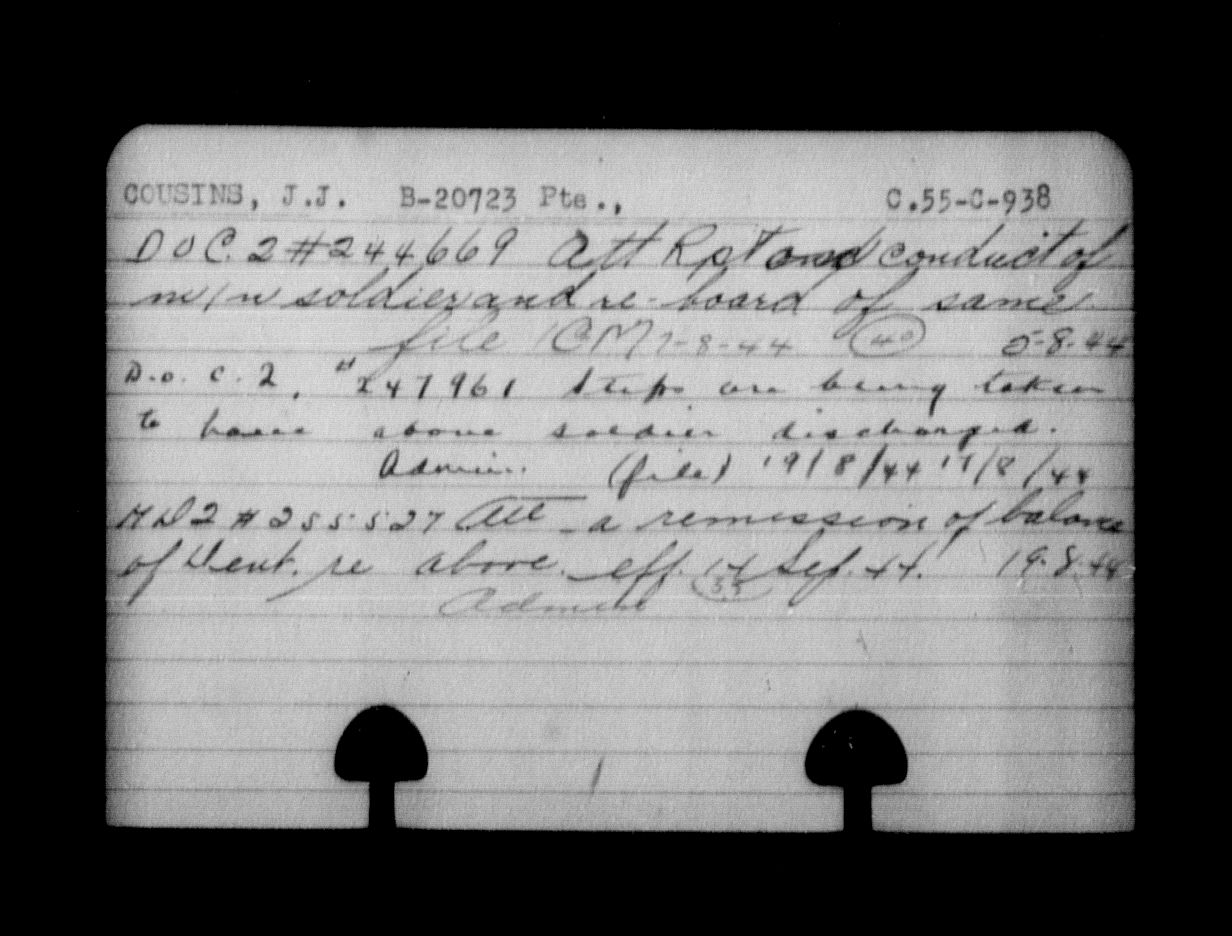 COUSINS, J.J. B-20723 Pte., C.55-C-938
D O C. 2 #244669 Att Rpt and conduct of
m/n soldier and re-board of same
file CM 7-8-44 (40) 5-8-44
D.O.C. 2, #247961 Steps are being taken
to have above soldier discharged.
Admin. (file) 19/8/44 17/8/44
MD2 #255527 Att a remission of balance
of Sent. re above. eff. 14 Sep. 44. 19-8-44
Admin (33)